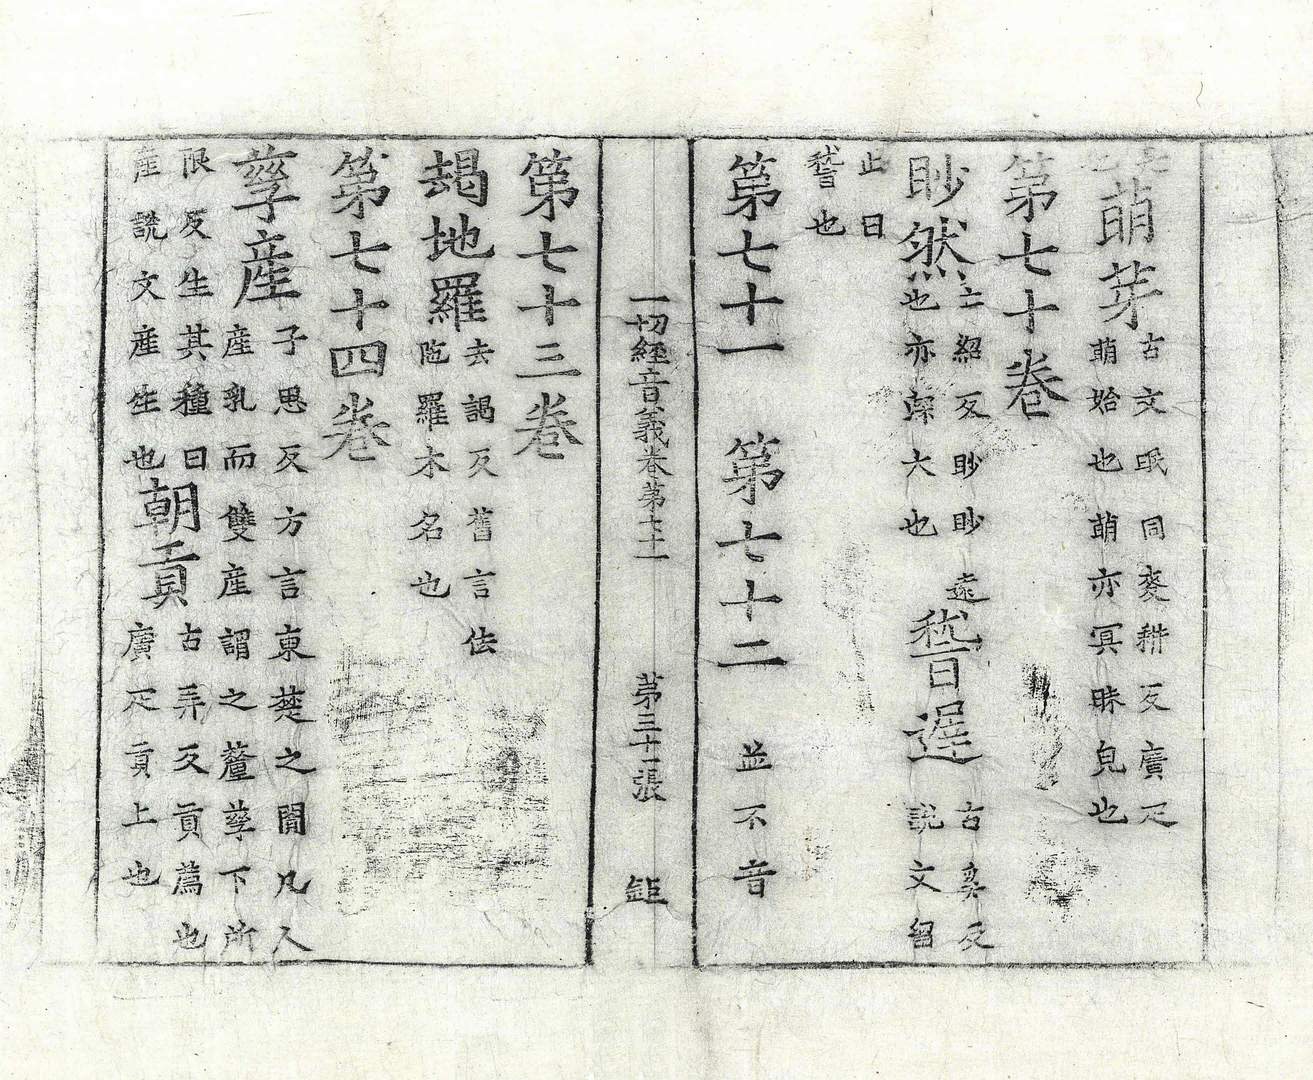 萌芽古文氓同麥耕反廣疋
萌始也萌亦冥昧皃也
第七十卷
眇然亡紹反眇眇遠
也亦深大也
稽遲古奚反
說文留
止曰
稽也
第七十一　第七十二　並不音
一切經音義卷第七十一　第三十一張　鉅
第七十三卷
朅地羅去謁反舊言佉
陁羅木名也
第七十四卷
孳產子思反方言東楚之閒凡人
產乳而雙產謂之釐孳下所
限反生其種曰
產說文產生也
朝貢古弄反貢薦也
廣疋貢上也